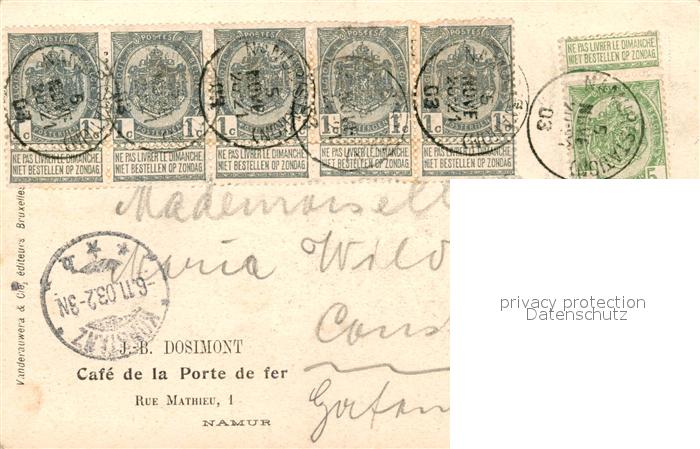 POSTES POSTES POSTES POSTES POSTES
1c 1c 1c 1c 1c
NE PAS LIVRER LE DIMANCHE NE PAS LIVRER LE DIMANCHE NE PAS LIVRER LE DIMANCHE NE PAS LIVRER LE DIMANCHE NE PAS LIVRER LE DIMANCHE
NIET BESTELLEN OP ZONDAG. NIET BESTELLEN OP ZONDAG. NIET BESTELLEN OP ZONDAG. NIET BESTELLEN OP ZONDAG. NIET BESTELLEN OP ZONDAG.
NE PAS LIVRER LE DIMANCHE
NIET BESTELLEN OP ZONDAG.
5
NOVE
03
Mademoisell
Maria Wild
Const
KONSTANZ
-6.11.03.2-3N
Vanderauwera & Cie, éditeurs Bruxelles
J.-B. DOSIMONT
Café de la Porte de fer
RUE MATHIEU, 1
NAMUR
privacy protection
Datenschutz